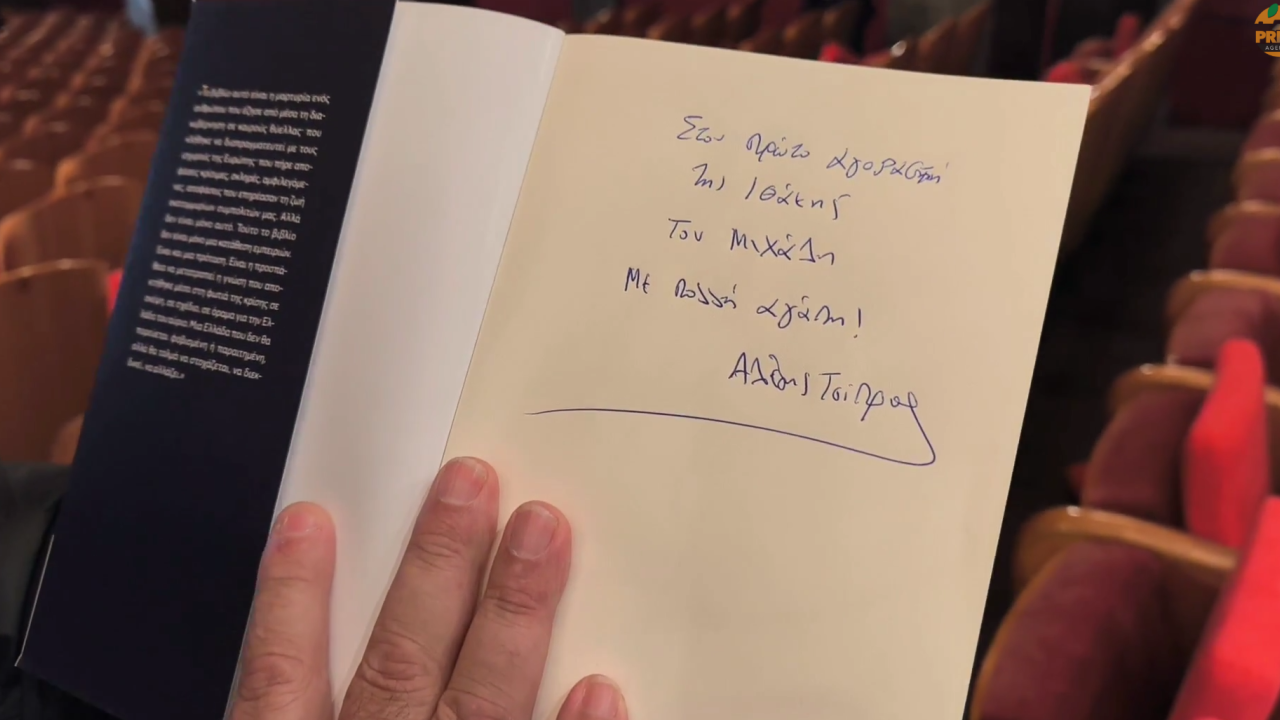 «Το βιβλίο αυτό είναι η μαρτυρία ενός
ανθρώπου που έζησε από μέσα τη δια-
κυβέρνηση σε καιρούς θύελλας· που
κλήθηκε να διαπραγματευτεί με τους
ισχυρούς της Ευρώπης· που πήρε απο-
φάσεις κρίσιμες, σκληρές, αμφιλεγόμε-
νες, αποφάσεις που επηρέασαν τη ζωή
εκατομμυρίων συμπολιτών μας. Αλλά
δεν είναι μόνο αυτό. Τούτο το βιβλίο
δεν είναι μόνο μια κατάθεση εμπειριών.
Είναι και μια πρόταση. Είναι η προσπά-
θεια να μετατραπεί η γνώση που απο-
κτήθηκε μέσα στη φωτιά της κρίσης σε
σκέψη, σε σχέδιο, σε όραμα για την Ελ-
λάδα του αύριο. Μια Ελλάδα που δεν θα
πορεύεται φοβισμένη ή παραιτημένη,
αλλά θα τολμά να στοχάζεται, να διεκ-
δικεί, να αλλάζει.»
Στον πρώτο αγοραστή
της Ιθάκης
Τον Μιχάλη
Με πολλή αγάπη!
Αλέξης Τσίπρας